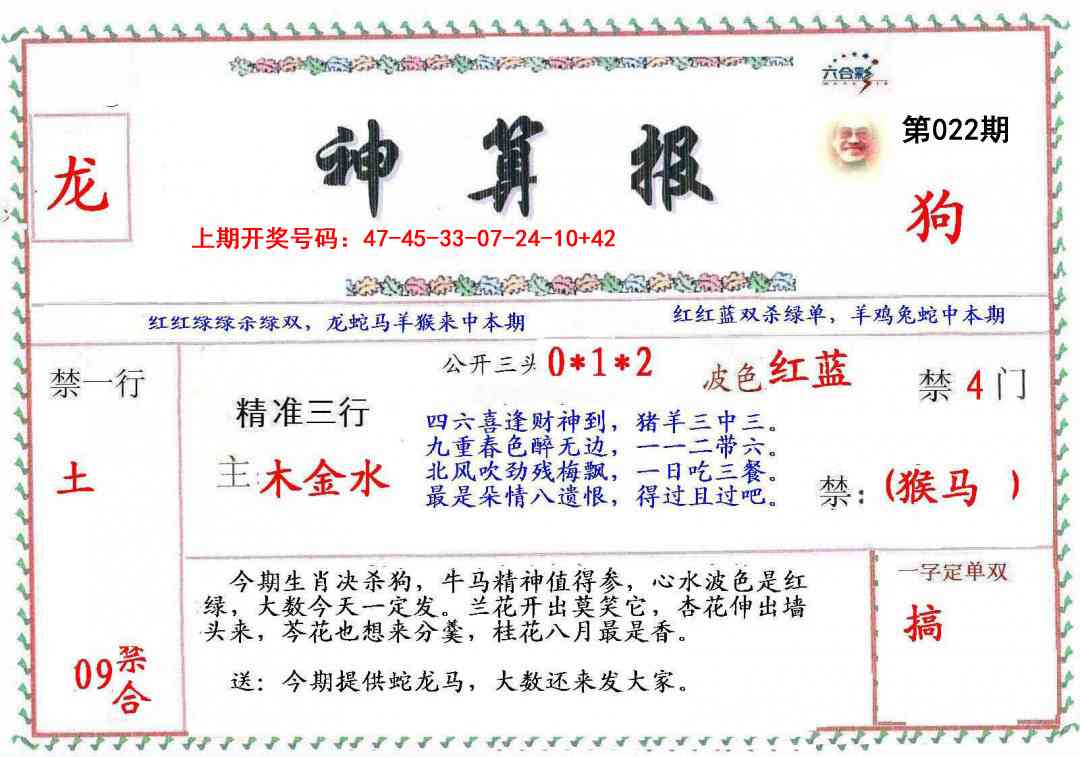 六合彩
第022期
龙
神算报
狗
上期开奖号码：47-45-33-07-24-10+42
红红绿绿杀绿双，龙蛇马羊猴来中本期
红红蓝双杀绿单，羊鸡兔蛇中本期
禁一行
土
09禁合
精准三行
主:木金水
公开三头0*1*2
波色红蓝
四六喜逢财神到，猪羊三中三。
九重春色醉无边，一一二带六。
北风吹劲残梅飘，一日吃三餐。
最是朵情八遗恨，得过且过吧。
禁4门
禁:(猴马 )
今期生肖决杀狗，牛马精神值得参，心水波色是红
绿，大数今天一定发。兰花开出莫笑它，杏花伸出墙
头来，芩花也想来分羹，桂花八月最是香。
送：今期提供蛇龙马，大数还来发大家。
一字定单双
搞